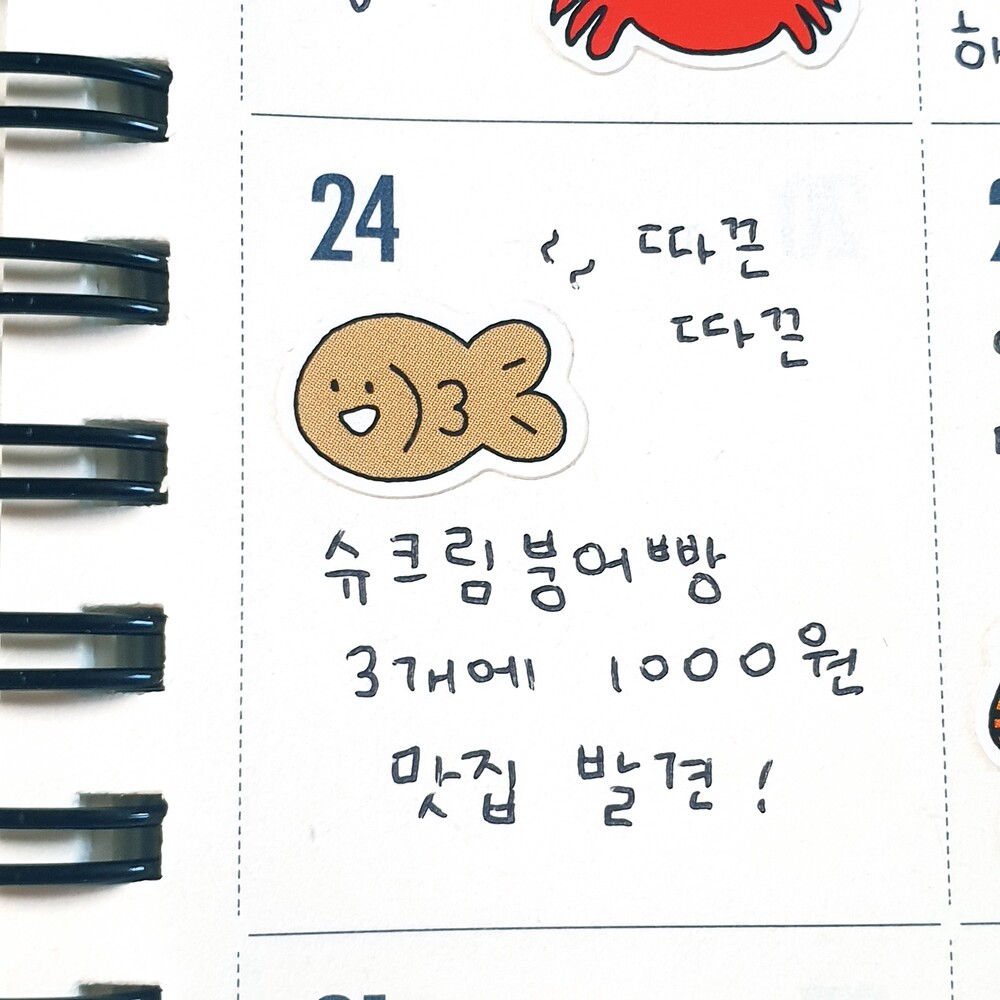 24
따끈
따끈
슈크림붕어빵
3개에 1000원
맛집 발견!